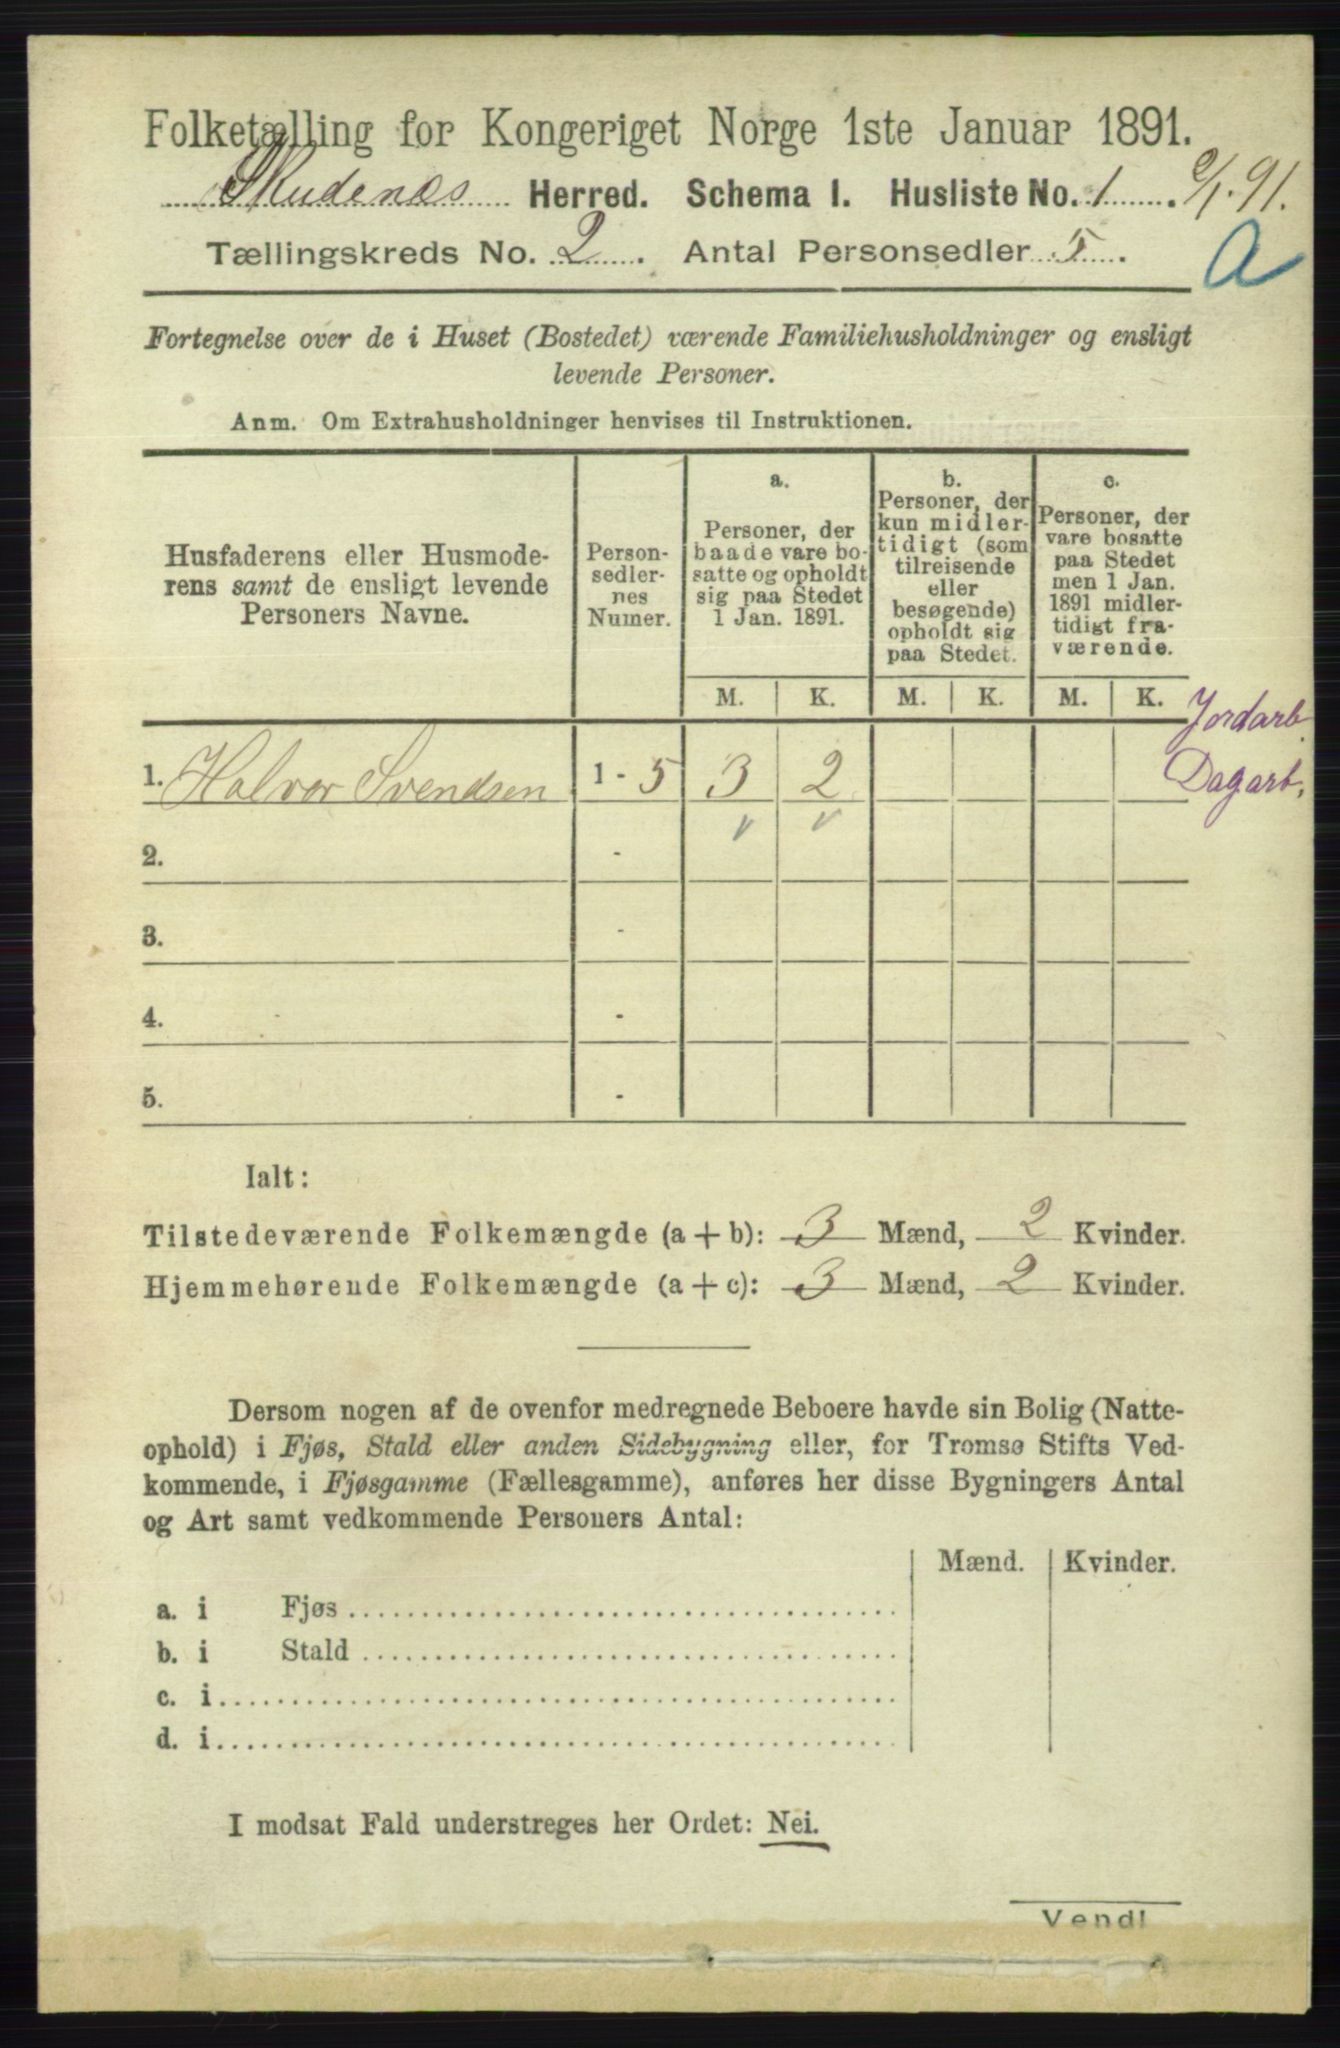 Folketælling for Kongeriget Norge 1ste Januar 1891.
Skudenæs Herred. Schema I. Husliste No. 1. 2/1. 91.
Tællingskreds No. 2. Antal Personsedler 5.
a
Fortegnelse over de i Huset (Bostedet) værende Familiehusholdninger og ensligt
levende Personer.
Anm. Om Extrahusholdninger henvises til Instruktionen.
Husfaderens eller Husmode-
rens samt de ensligt levende
Personers Navne.
Person-
sedler-
nes
Numer.
a.
Personer, der
baade vare bo-
satte og opholdt
sig paa Stedet
1 Jan. 1891.
b.
Personer, der
kun midler-
tidigt (som
tilreisende
eller
besøgende)
opholdt sig
paa Stedet.
c.
Personer, der
vare bosatte
paa Stedet
men 1 Jan.
1891 midler-
tidigt fra-
værende.
M. K. M. K. M. K.
Jordarb.
1. Halvor Svendsen 1 - 5 3 2 Dagarb.
2. -
3. -
4. -
5. -
Ialt:
Tilstedeværende Folkemængde (a + b): 3 Mænd, 2 Kvinder.
Hjemmehørende Folkemængde (a + c): 3 Mænd, 2 Kvinder.
Dersom nogen af de ovenfor medregnede Beboere havde sin Bolig (Natte-
ophold) i Fjøs, Stald eller anden Sidebygning eller, for Tromsø Stifts Ved-
kommende, i Fjøsgamme (Fællesgamme), anføres her disse Bygningers Antal
og Art samt vedkommende Personers Antal:
Mænd. Kvinder.
a. i Fjøs
b. i Stald
c. i
d. i
I modsat Fald understreges her Ordet: Nei.
Vend!